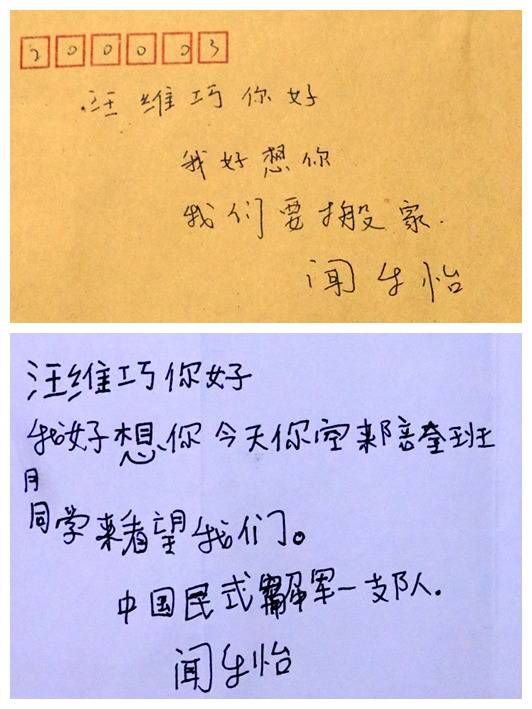 200003
汪维巧你好
我好想你
我们要搬家.
闻乍怡
汪维巧你好
我好想你今天你 来陪 班
月
同学来看望我们。
中国民式 解军一支队.
闻乍怡